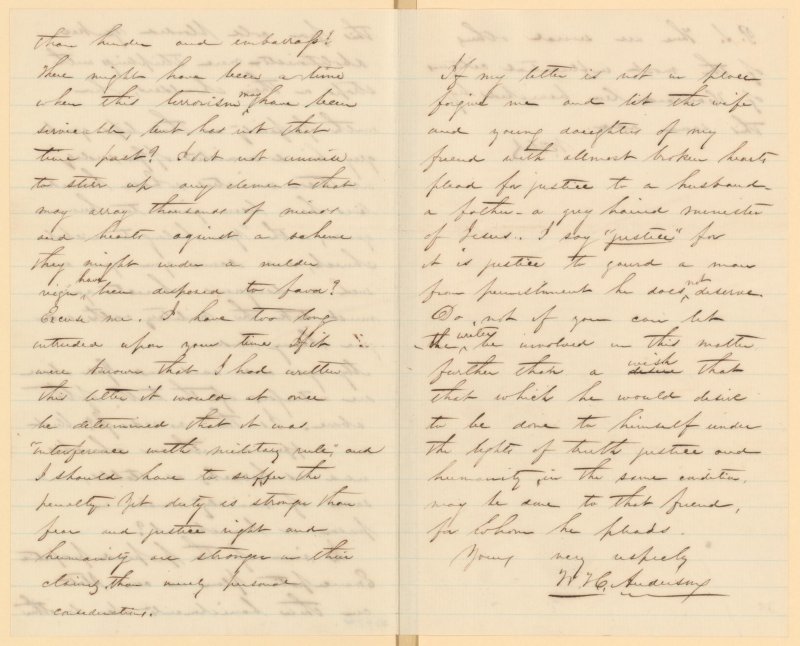 than hinder and embarrass?
There might have been a time
when this terrorism may have been
servicable, but has not that
time past? Is it not unwise
to stirr up any element that
may array thousands of minds
and hearts against a scheme
they might under a milder
reign have been disposed to favor?
Excuse me. I have too long
intruded upon your time. If it
were known that I had written
this letter it would at once
be determined that it was
"interference with military rule," and
I should have to suffer the
penalty. Yet duty is stronger than
fear and justice right and
humanity are stronger in their
claims, than merely personal
considerations.
If my letter is not in place
forgive me and let the wife
and young daughters of my
friend with allmost broken hearts
plead for justice to a husband-
a father- a grey haired minister
of Jesus. I say "justice" for
it is justice to guard a man
from punishment he does not deserve.
Do not if you can let
the writer be involved in this matter
further than a desire wish that
that which he would desire
to be done to himself under
the lights of truth justice and
humanity, in the same condition,
may be done to that friend,
for whom he pleads.
Yours very respecly
W. H. Anderson